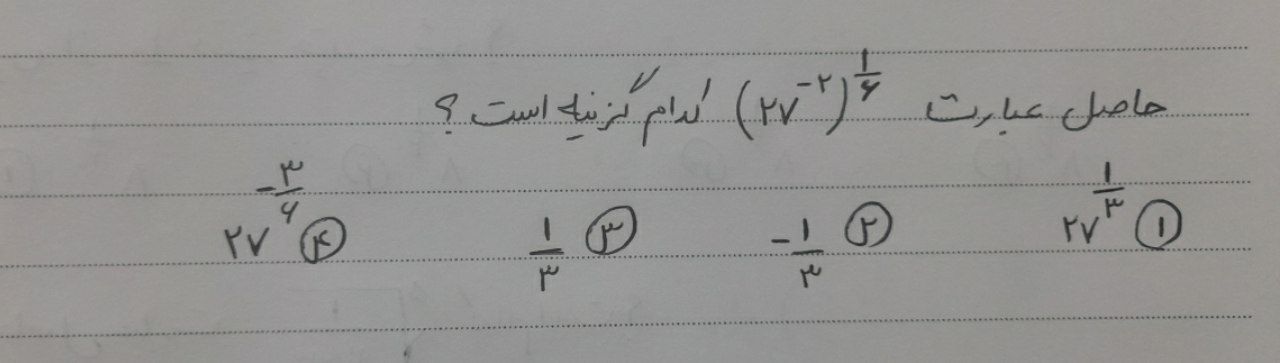 حاصل عبارت (۲۷^-۲)^۱/۶ کدام گزینه است؟
۱) ۲۷^۱/۳ ۲) -۱/۳ ۳) ۱/۳ ۴) ۲۷^-۳/۶